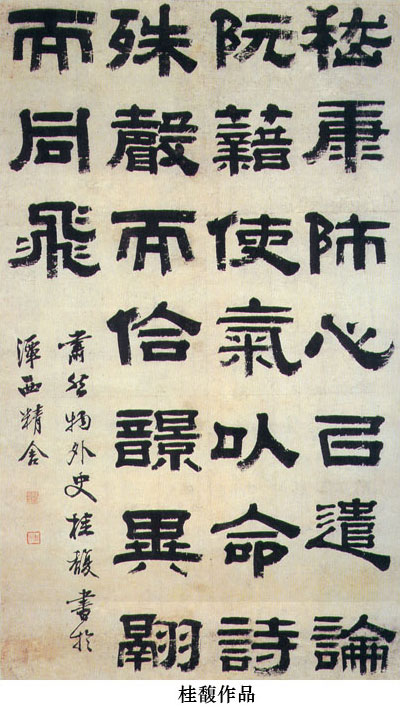 嵇康師心已遣論
阮藉使氣以命詩
殊聲而佮響異翮
而同飛
肅然物外史桂馥書於
潭西精舍
桂馥作品